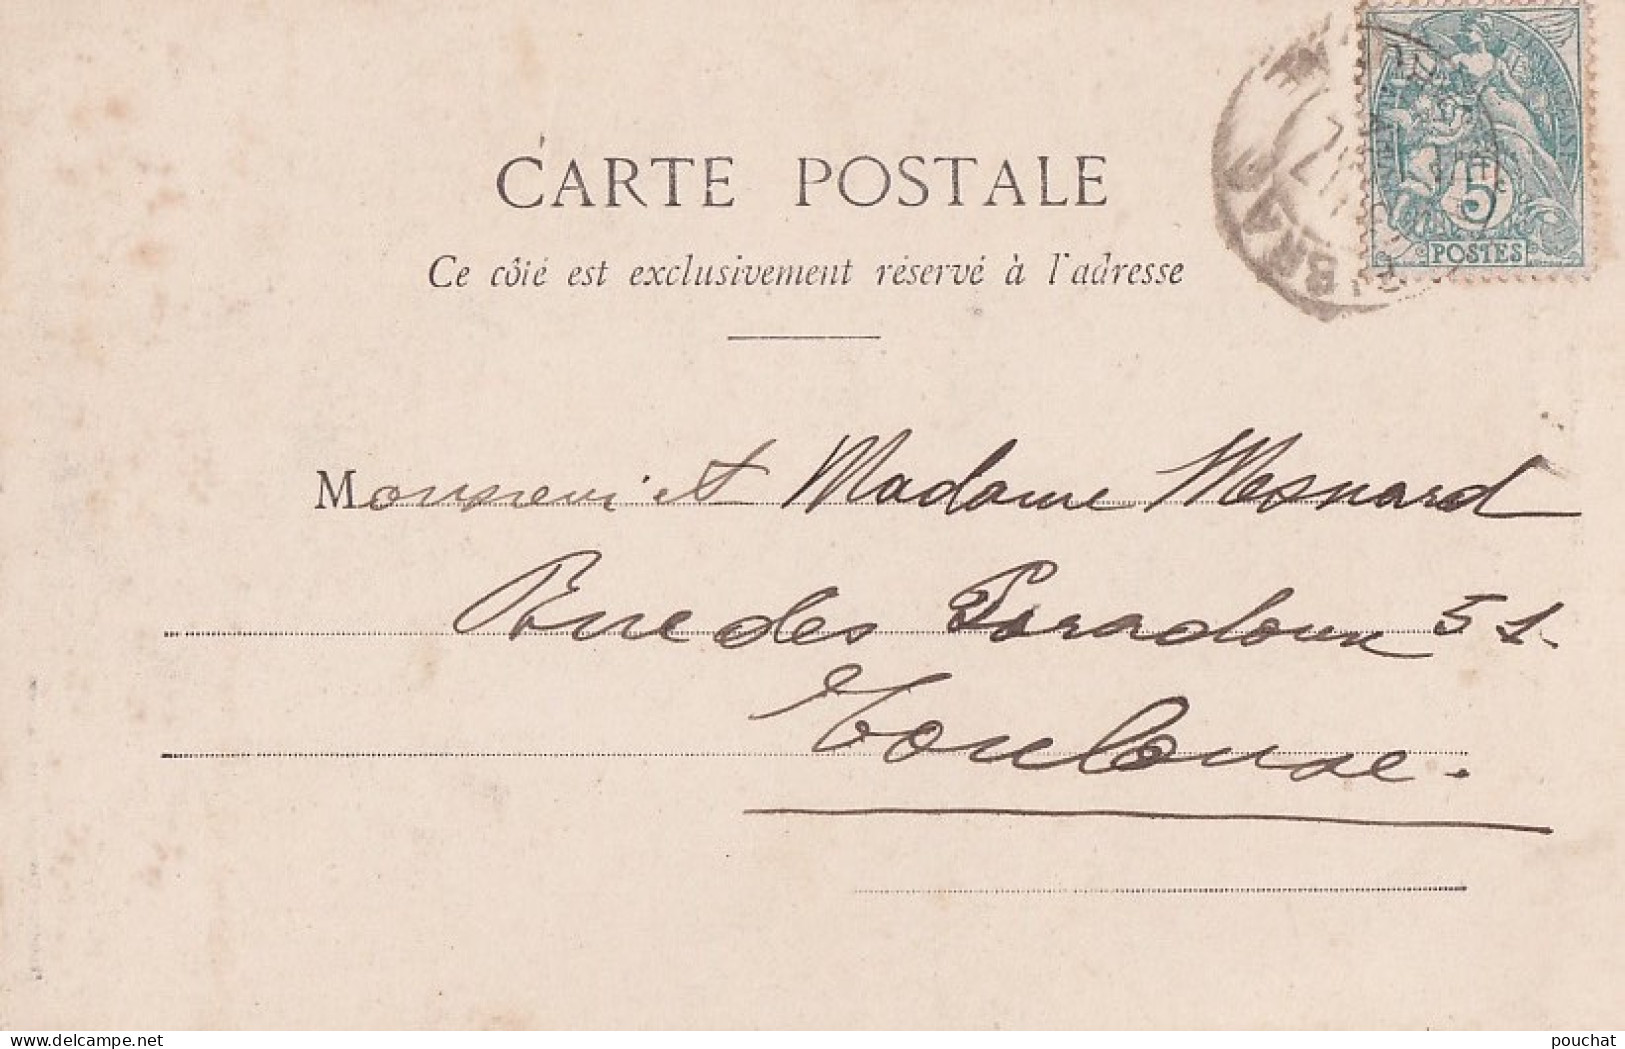 CARTE POSTALE
Ce côté est exclusivement réservé à l'adresse
5
POSTES
Monsieur et Madame Mesnard
Rue des Paradoux 51
Toulouse.
www.delcampe.net
pouchat